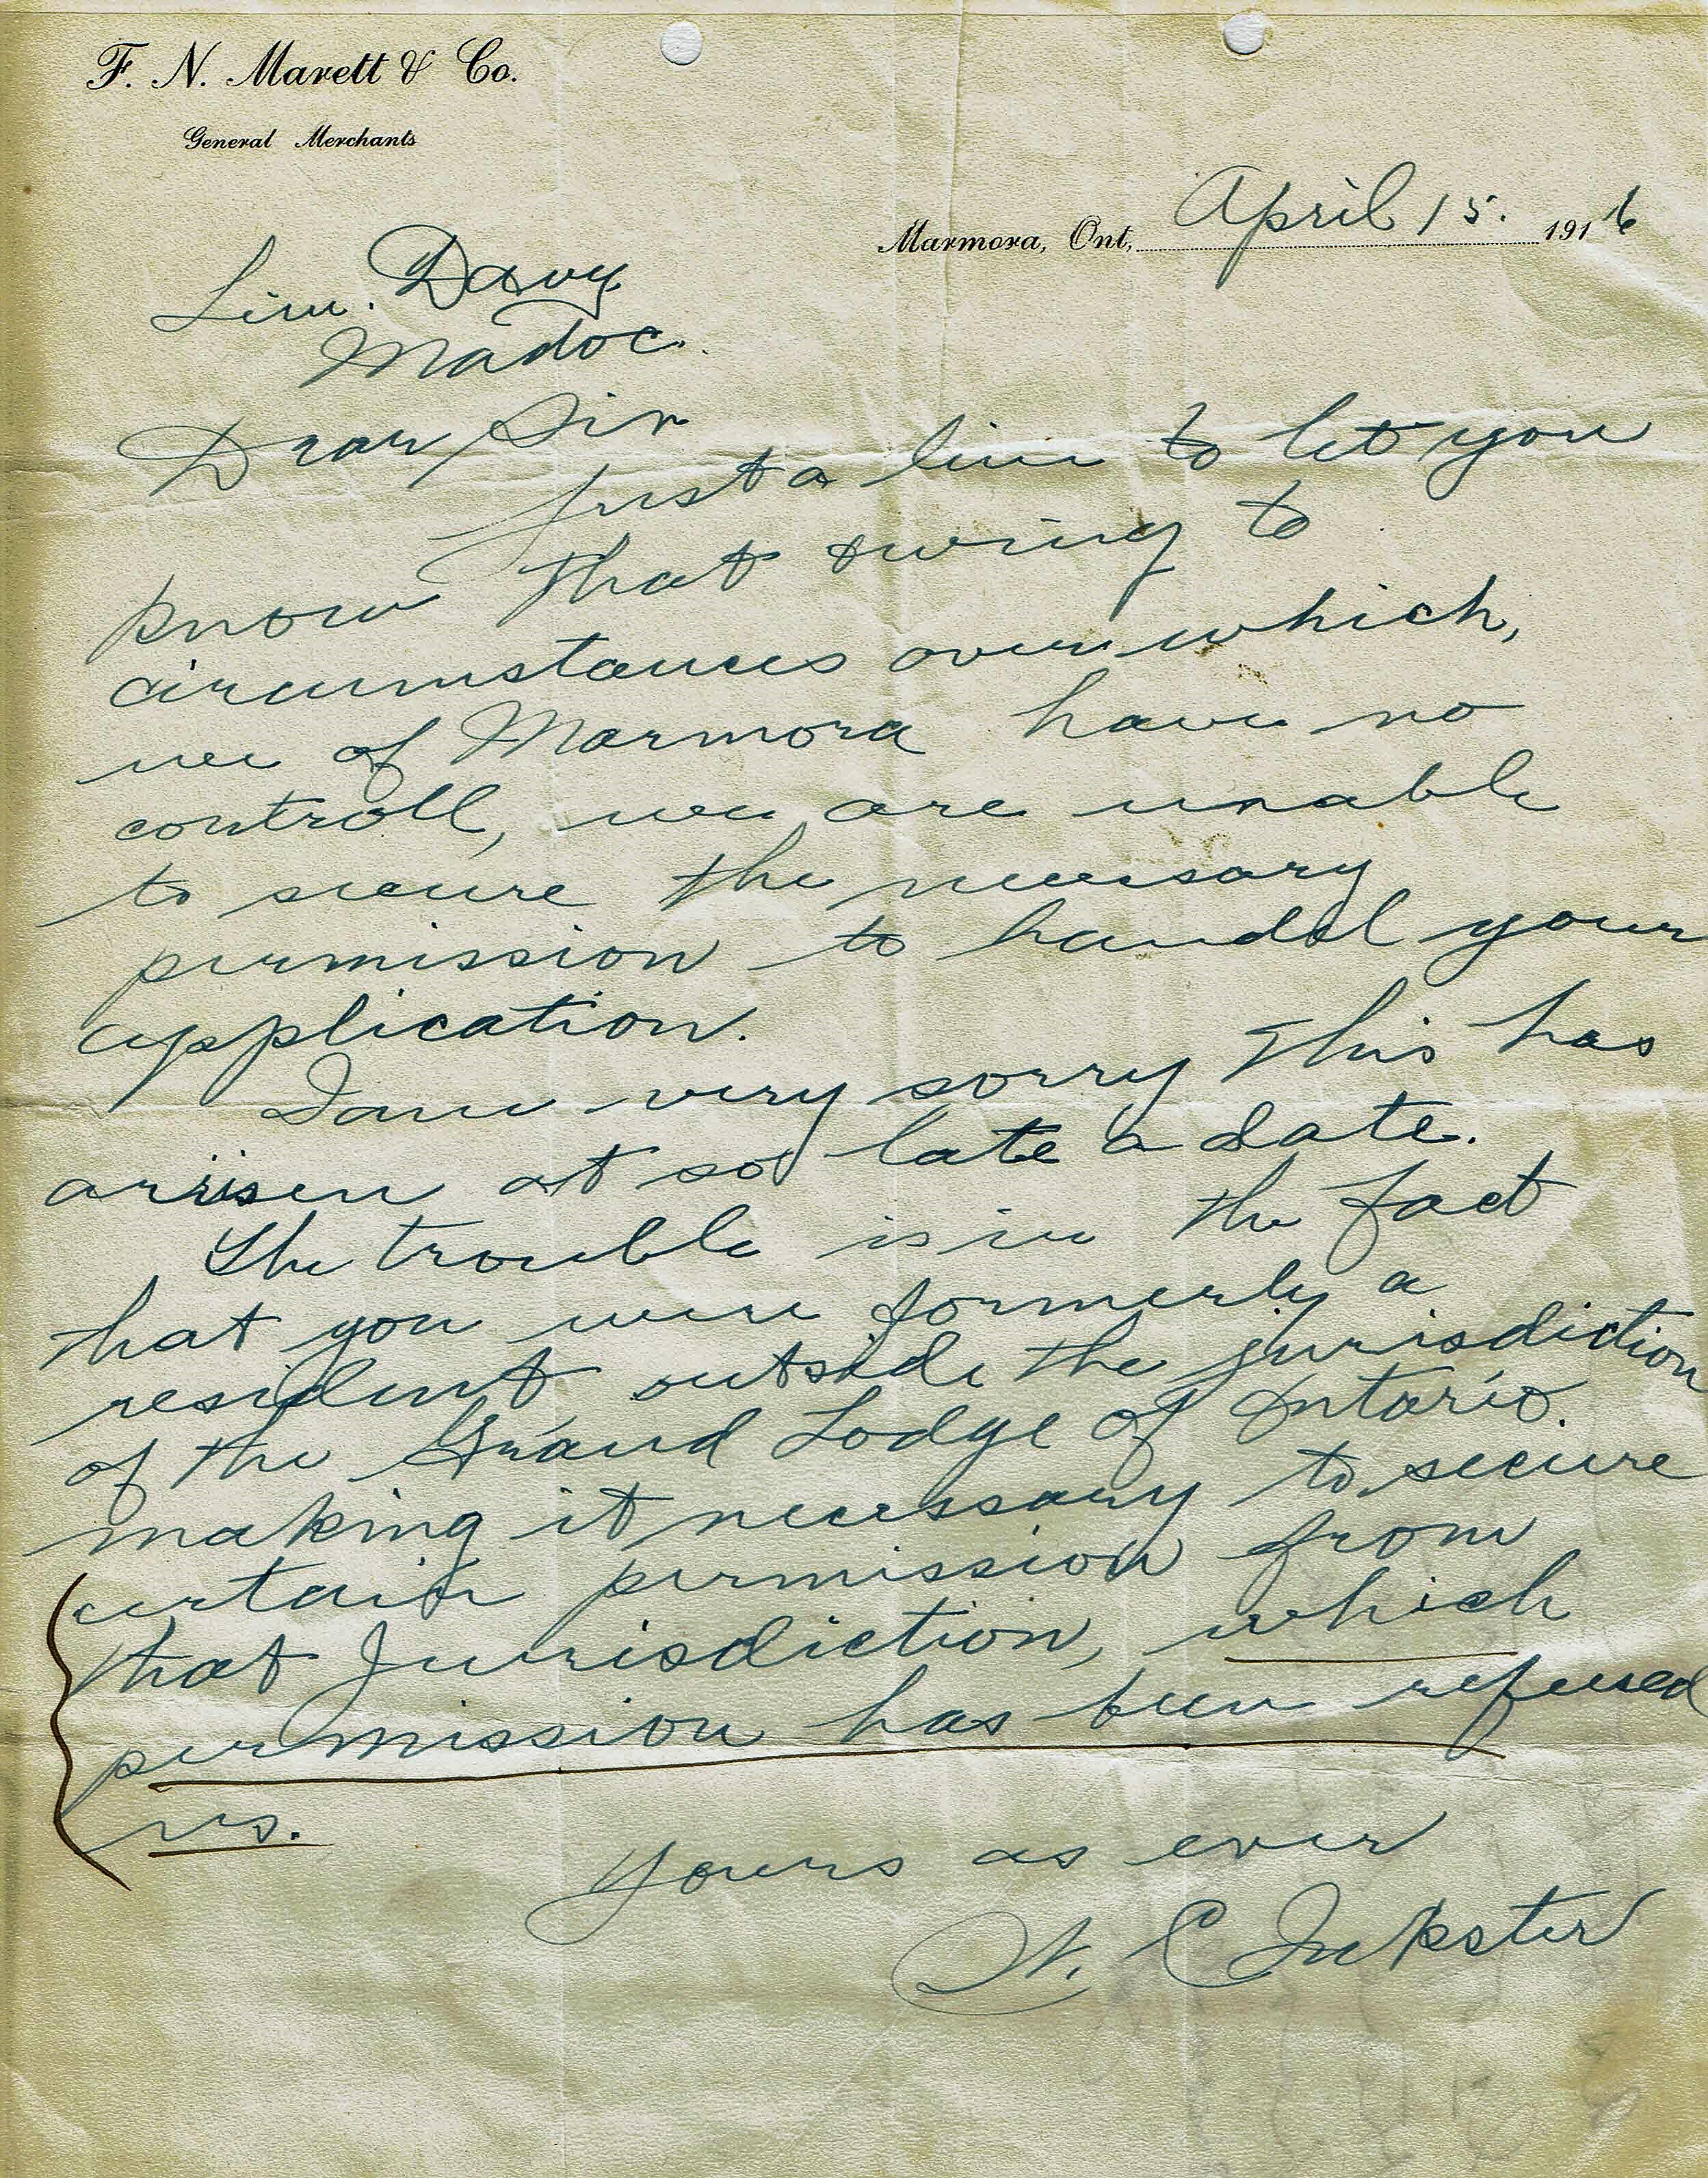 F. N. Marett & Co.
General Merchants
Marmora, Ont, April 15. 1916
Lieu. Davy
Madoc.
Dear Sir
Just a line to let you
know that owing to
circumstances over which,
we of Marmora have no
controll, we are unable
to secure the necessary
permission to handel your
application.
I am very sorry this has
arrisen at so late a date.
The trouble is in the fact
that you were formerly a
resident outside the jurisdiction
of the Grand Lodge of Ontario.
making it necessary to secure
certain permission from
that Jurisdiction, which
permission has been refused
us.
Yours as ever
C Inkster